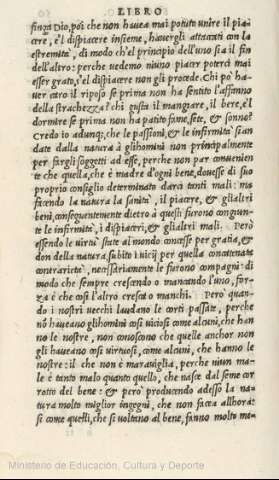 LIBRO
finga Dio, poi che non hauea mai potuto unire il pia/
cere, e'l dispiacere insieme, hauergli attaccati con la
estremità, di modo ch'el principio dell'uno sia il fin
dell'altro: perche uedemo niuno piacer poterci mai
esser grato, s'el dispiacere non gli procede. Chi po' ha/
uer caro il riposo se prima non ha sentito l'affanno
della strachezza? chi gusta il mangiare, il bere, e'l
dormire se prima non ha patito fame, sete, & sonno?
Credo io adunqꝫ, che le passioni, & le infirmità sian
date dalla natura à gli homini non principalmente
per fargli soggetti ad esse, perche non par conuenien
te che quella, che è madre d'ogni bene, douesse di suo
proprio consiglio determinato darci tanti mali: ma
facendo la natura la sanità, il piacere, & gli altri
beni, conseguentemente dietro à questi furono congiun
te le infirmità, i dispiaceri, & gli altri mali. Però
essendo le uirtù state al mondo concesse per gratia, &
don della natura, subito i uicij per quella concatenata
contrarietà, necessariamente le furono compagni: di
modo che sempre crescendo o mancando l'uno, for/
za è che cosi l'altro cresca o manchi. Però quan/
do i nostri uecchi laudano le corti passate, perche
nō haueano gli homini cosi uitiosi come alcuni, che han
no le nostre, non conoscono che quelle anchor non
gli haueano cosi uirtuosi, come alcuni, che hanno le
nostre: il che non è marauiglia, perche niun ma/
le è tanto malo quanto quello, che nasce dal seme cor
rotto del bene: & però producendo adesso la na/
tura molto miglior ingegni, che non facea allhora:
si come quelli, che si uoltano al bene, fanno molto me/
Ministerio de Educación, Cultura y Deporte